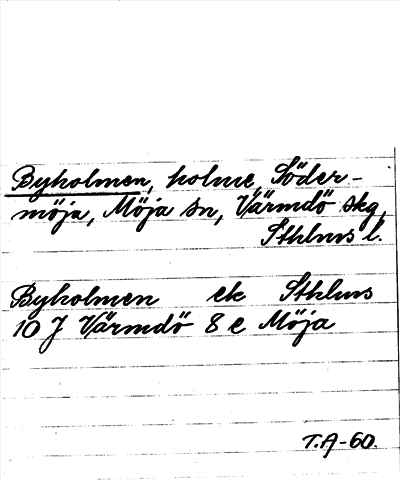 Byholmen, holme, Söder-
möja, Möja sn, Värmdö skg,
Sthlms l.
Byholmen ek Sthlms
10 J Värmdö 8 e Möja
T.A-60.